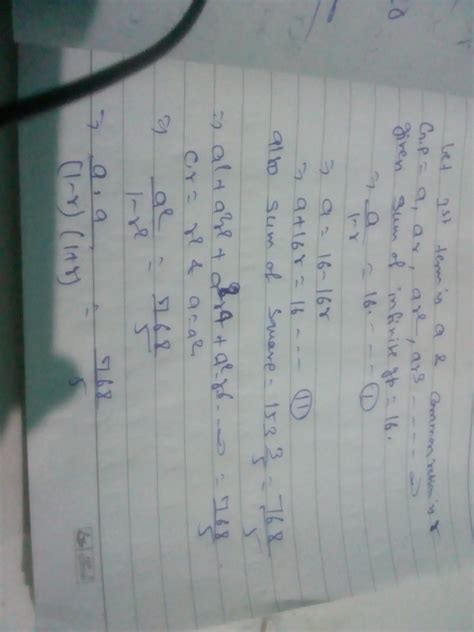 Let 1st term is a & common ratio is r
G.P = a, ar, ar², ar3 ----- ∞
given sum of infinite gp = 16.
⇒ a/(1-r) = 16. ---- (I)
⇒ a = 16-16r
⇒ a+16r = 16 --- (II)
also sum of square = 153 3/5 = 768/5
⇒ a² + a²r² + a²r4 + a²r6 --- ∞ = 768/5
C.r = r² & a = a²
⇒ a²/(1-r²) = 768/5
⇒ a.a/((1-r) (1+r)) = 768/5